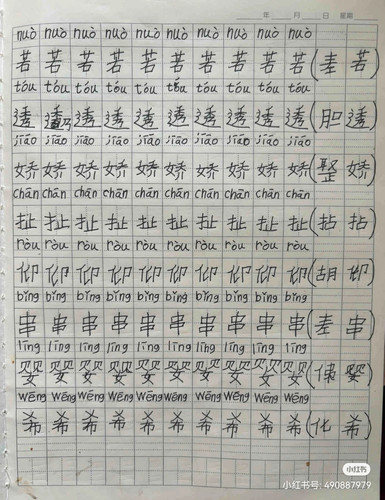 年 月 日 星期
nuò nuò nuò nuò nuò nuò nuò nuò nuò
若 若 若 若 若 若 若 若 若 ( 若)
tóu tóu tóu tóu tóu tóu tóu tóu tóu
透 透 透 透 透 透 透 透 透 (胆 透)
jiāo jiāo jiāo jiāo jiāo jiāo jiāo jiāo jiāo
娇 娇 娇 娇 娇 娇 娇 娇 娇 (整 娇)
chān chān chān chān chān chān chān chān chān
扯 扯 扯 扯 扯 扯 扯 扯 扯 (拈 拈)
ròu ròu ròu ròu ròu ròu ròu ròu ròu
(胡 )
bǐng bǐng bǐng bǐng bǐng bǐng bǐng bǐng bǐng
串 串 串 串 串 串 串 串 串 (差 串)
līng līng līng līng līng līng līng līng līng
婴 婴 婴 婴 婴 婴 婴 婴 婴 ( 婴)
wēng wēng wēng wēng wēng wēng wēng wēng wēng
希 希 希 希 希 希 希 希 希 (化 希)
小红书
小红书号: 490887979